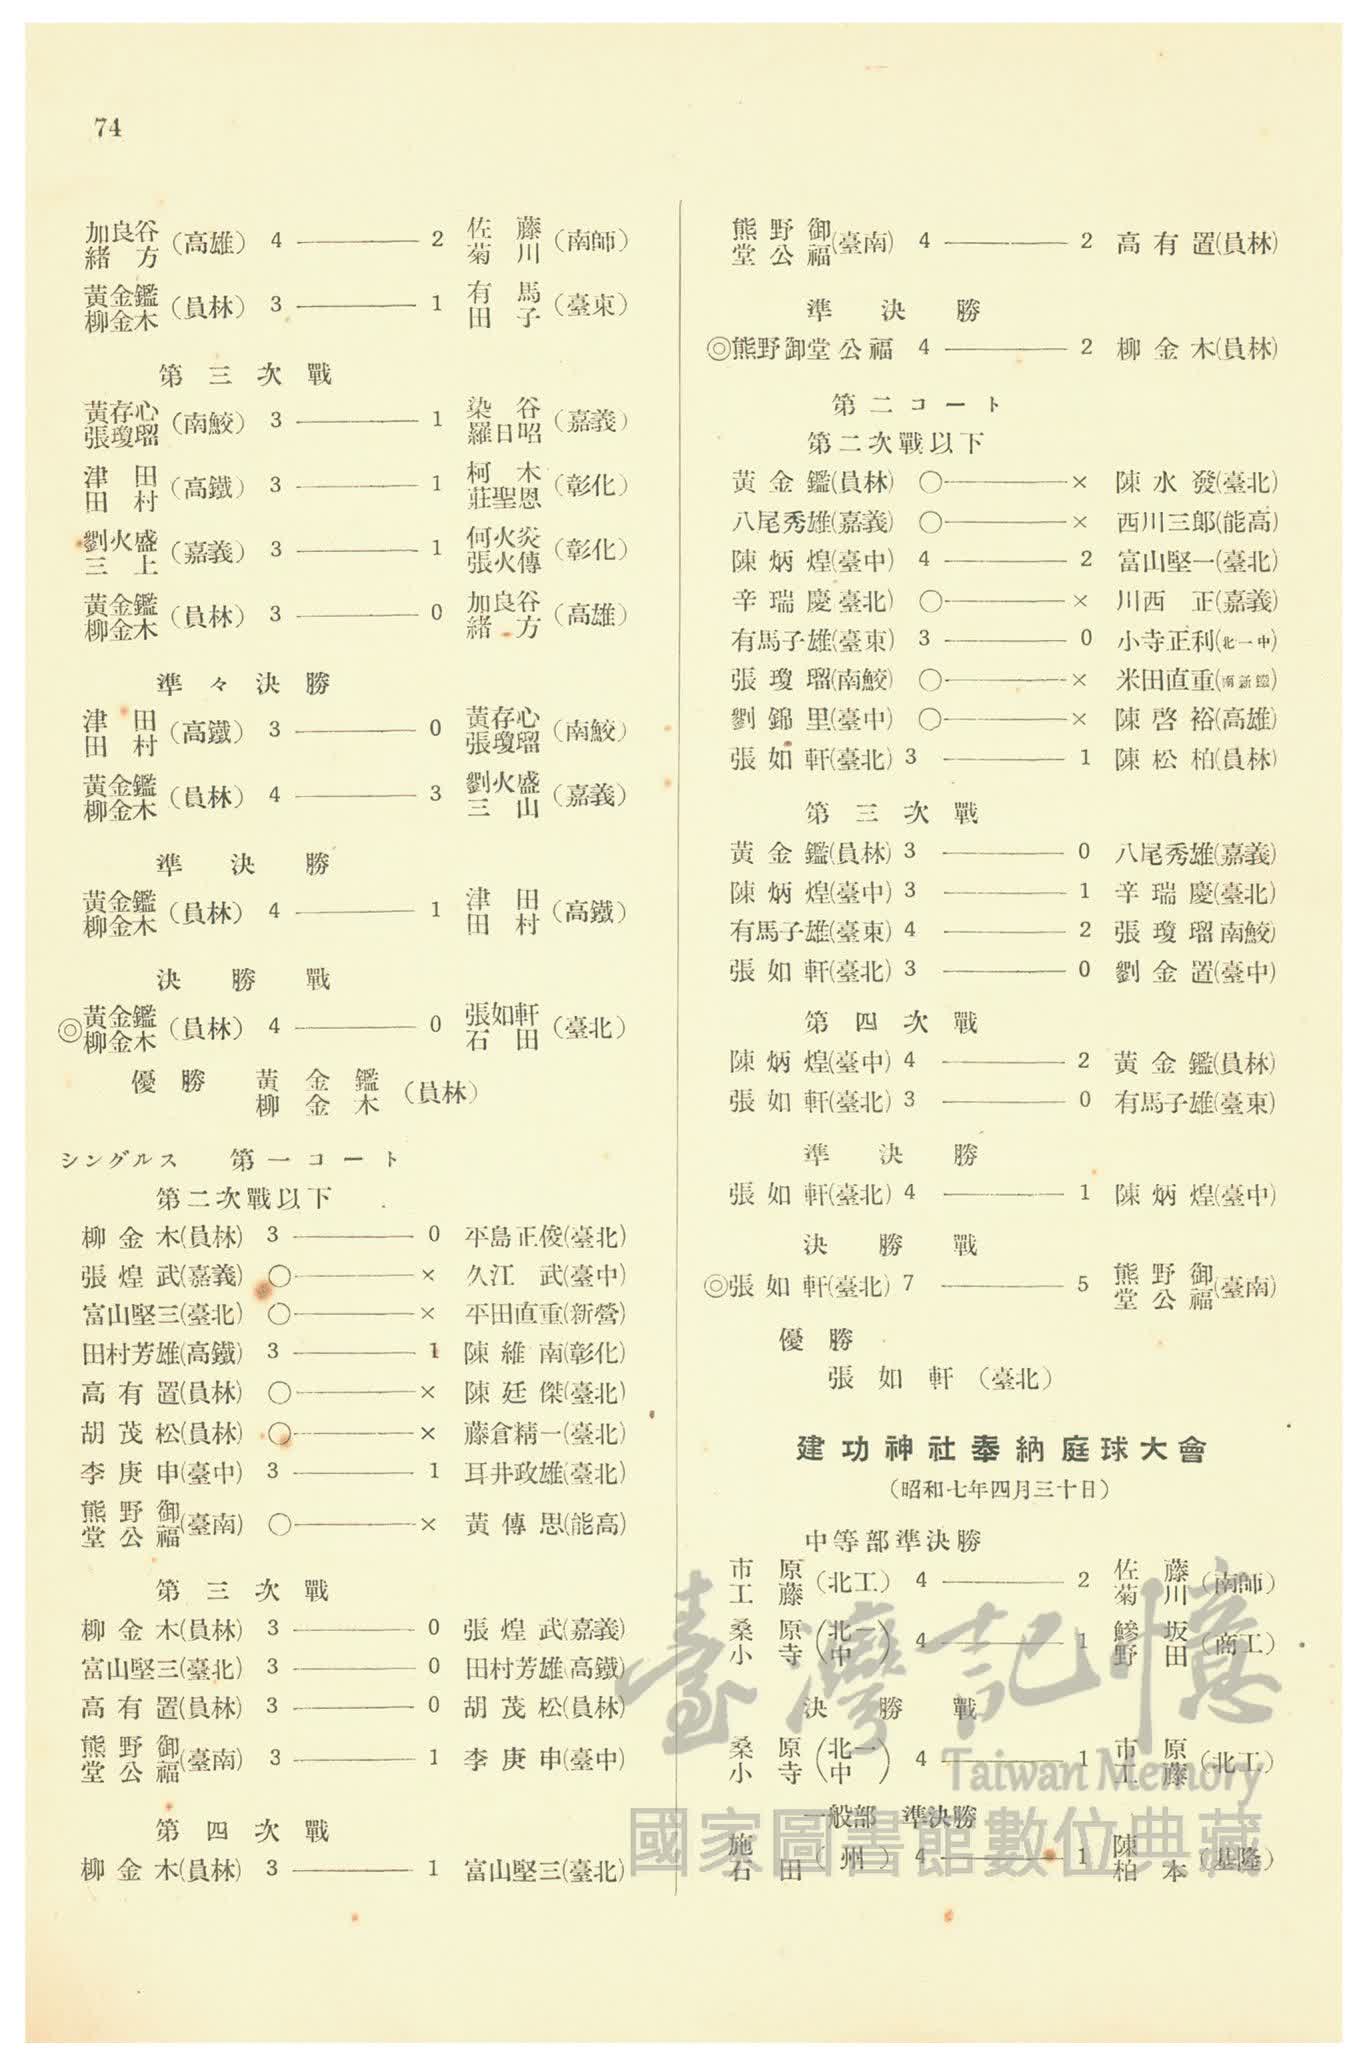 74
加良谷 緒方 (高雄) 4 ——— 2 佐藤 菊川 (南師)
黃金鑑 柳金木 (員林) 3 ——— 1 有馬 田子 (臺東)
第三次戰
黃存心 張瓊瑠 (南鮫) 3 ——— 1 染谷 羅日昭 (嘉義)
津田 田村 (高鐵) 3 ——— 1 柯木 莊聖恩 (彰化)
劉火盛 三上 (嘉義) 3 ——— 1 何火炎 張火傳 (彰化)
黃金鑑 柳金木 (員林) 3 ——— 0 加良谷 緒方 (高雄)
準々決勝
津田 田村 (高鐵) 3 ——— 0 黃存心 張瓊瑠 (南鮫)
黃金鑑 柳金木 (員林) 4 ——— 3 劉火盛 三山 (嘉義)
準決勝
黃金鑑 柳金木 (員林) 4 ——— 1 津田 田村 (高鐵)
決勝戰
◎黃金鑑 柳金木 (員林) 4 ——— 0 張如軒 石田 (臺北)
優勝 黃金鑑 柳金木 (員林)
シングルス 第一コート
第二次戰以下
柳金木(員林) 3 ——— 0 平島正俊(臺北)
張煌武(嘉義) ○——— × 久江武(臺中)
富山堅三(臺北) ○——— × 平田直重(新營)
田村芳雄(高鐵) 3 ——— 1 陳維南(彰化)
高有置(員林) ○——— × 陳廷傑(臺北)
胡茂松(員林) ○——— × 藤倉精一(臺北)
李庚申(臺中) 3 ——— 1 耳井政雄(臺北)
熊野御堂公福(臺南) ○——— × 黃傳思(能高)
第三次戰
柳金木(員林) 3 ——— 0 張煌武(嘉義)
富山堅三(臺北) 3 ——— 0 田村芳雄(高鐵)
高有置(員林) 3 ——— 0 胡茂松(員林)
熊野御堂公福(臺南) 3 ——— 1 李庚申(臺中)
第四次戰
柳金木(員林) 3 ——— 1 富山堅三(臺北)
熊野御堂公福(臺南) 4 ——— 2 高有置(員林)
準決勝
◎熊野御堂公福 4 ——— 2 柳金木(員林)
第二コート
第二次戰以下
黃金鑑(員林) ○——— × 陳水發(臺北)
八尾秀雄(嘉義) ○——— × 西川三郎(能高)
陳炳煌(臺中) 4 ——— 2 富山堅一(臺北)
辛瑞慶 臺北) ○——— × 川西正(嘉義)
有馬子雄(臺東) 3 ——— 0 小寺正利(北一中)
張瓊瑠(南鮫) ○——— × 米田直重(南新鐵)
劉錦里(臺中) ○——— × 陳啓裕(高雄)
張如軒(臺北) 3 ——— 1 陳松柏(員林)
第三次戰
黃金鑑(員林) 3 ——— 0 八尾秀雄(嘉義)
陳炳煌(臺中) 3 ——— 1 辛瑞慶(臺北)
有馬子雄(臺東) 4 ——— 2 張瓊瑠 南鮫)
張如軒(臺北) 3 ——— 0 劉金置(臺中)
第四次戰
陳炳煌(臺中) 4 ——— 2 黃金鑑(員林)
張如軒(臺北) 3 ——— 0 有馬子雄(臺東)
準決勝
張如軒(臺北) 4 ——— 1 陳炳煌(臺中)
決勝戰
◎張如軒(臺北) 7 ——— 5 熊野御堂公福(臺南)
優勝
張如軒 (臺北)
建功神社奉納庭球大會
(昭和七年四月三十日)
中等部準決勝
市原 工藤 (北工) 4 ——— 2 佐藤 菊川 (南師)
桑原 小寺 (北一中) 4 ——— 1 鰺坂 野田 (商工)
決勝戰
桑原 小寺 (北一中) 4 ——— 1 市原 工藤 (北工)
一般部 準決勝
施 石田 (州) 4 ——— 1 陳 柏本 (基隆)
臺灣記憶
Taiwan Memory
國家圖書館數位典藏